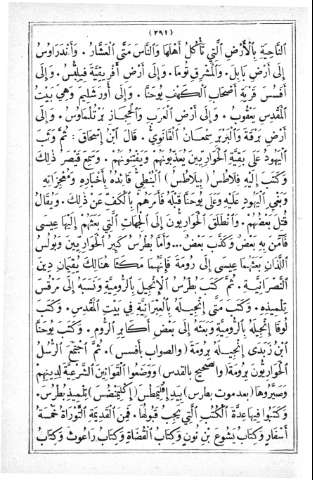 (٣٩١)
النَّاحِيَةِ بِالْأَرْضِ الَّتِي تَأْكُلُ أَهْلُهَا وَالنَّاسَ مَتَّى الْعَشَّارُ. وَأَنْدَرَاوُسُ
إِلَى أَرْضِ بَابِلَ. وَالْمَشْرِقِ تُومَا. وَإِلَى أَرْضِ أَفْرِيقِيَّةَ فِيلِبُّسُ. وَإِلَى
أَفْسُسَ قَرْيَةِ أَصْحَابِ الْكَهْفِ يُوحَنَّا. وَإِلَى أُورَشَلِيمَ وَهِيَ بَيْتُ
الْمَقْدِسِ يَعْقُوبُ. وَإِلَى أَرْضِ الْعَرَبِ وَالْحِجَازِ بَرْتُلْمَاوُسُ. وَإِلَى
أَرْضِ بَرْقَةَ وَالْبَرْبَرِ سِمْعَانُ الْقَانَوِيُّ. قَالَ ابْنُ إِسْحَاقَ: ثُمَّ وَثَبَ
الْيَهُودُ عَلَى بَقِيَّةِ الْحَوَارِيِّينَ يُعَذِّبُونَهُمْ وَيَفْتِنُونَهُمْ. وَسَمِعَ قَيْصَرُ ذٰلِكَ
وَكَتَبَ إِلَيْهِ فِلَاطُسُ (بِيلَاطُسُ) النَّبَطِيُّ قَائِدُهُ بِأَخْبَارِهِ وَمُعْجِزَاتِهِ
وَبَغْيِ الْيَهُودِ عَلَيْهِ وَعَلَى يُوحَنَّا قَبْلَهُ فَأَمَرَهُمْ بِالْكَفِّ عَنْ ذٰلِكَ. وَيُقَالُ
قُتِلَ بَعْضُهُمْ. وَانْطَلَقَ الْحَوَارِيُّونَ إِلَى الْجِهَاتِ الَّتِي بَعَثَهُمْ إِلَيْهَا عِيسَى
فَآمَنَ بِهِ بَعْضٌ وَكَذَّبَ بَعْضٌ ... وَأَمَّا بُطْرُسُ كَبِيرُ الْحَوَارِيِّينَ وَبُولُسُ
اللَّذَانِ بَعَثَهُمَا عِيسَى إِلَى رُومَةَ فَإِنَّهُمَا مَكَثَا هُنَالِكَ يُقِيمَانِ دِينَ
النَّصْرَانِيَّةِ. ثُمَّ كَتَبَ بُطْرُسُ الْإِنْجِيلَ بِالرُّومِيَّةِ وَنَسَبَهُ إِلَى مَرْقُسَ
تِلْمِيذِهِ. وَكَتَبَ مَتَّى إِنْجِيلَهُ بِالْعِبْرَانِيَّةِ فِي بَيْتِ الْمَقْدِسِ. وَكَتَبَ
لُوقَا إِنْجِيلَهُ بِالرُّومِيَّةِ وَبَعَثَهُ إِلَى بَعْضِ أَكَابِرِ الرُّومِ. وَكَتَبَ يُوحَنَّا
ابْنُ زَبْدَى إِنْجِيلَهُ بِرُومَةَ (وَالصواب أفسس). ثُمَّ اجْتَمَعَ الرُّسُلُ
الْحَوَارِيُّونَ بِرُومَةَ (والصحيح بالقدس) وَوَضَعُوا الْقَوَانِينَ الشَّرْعِيَّةَ لِدِينِهِمْ
وَصَيَّرُوهَا (بعد موت بطرس) بِيَدِ إِقْلِيمَنْطُسَ (إِكْلِيمَنْضُسَ) تِلْمِيذِ بُطْرُسَ.
وَكَتَبُوا فِيهَا عِدَّةَ الْكُتُبِ الَّتِي يَجِبُ قَبُولُهَا. فَمِنَ الْقَدِيمَةِ التَّوْرَاةُ خَمْسَةُ
أَسْفَارٍ وَكِتَابُ يَشُوعَ بْنِ نُونَ وَكِتَابُ الْقُضَاةِ وَكِتَابُ رَاعُوثَ وَكِتَابُ